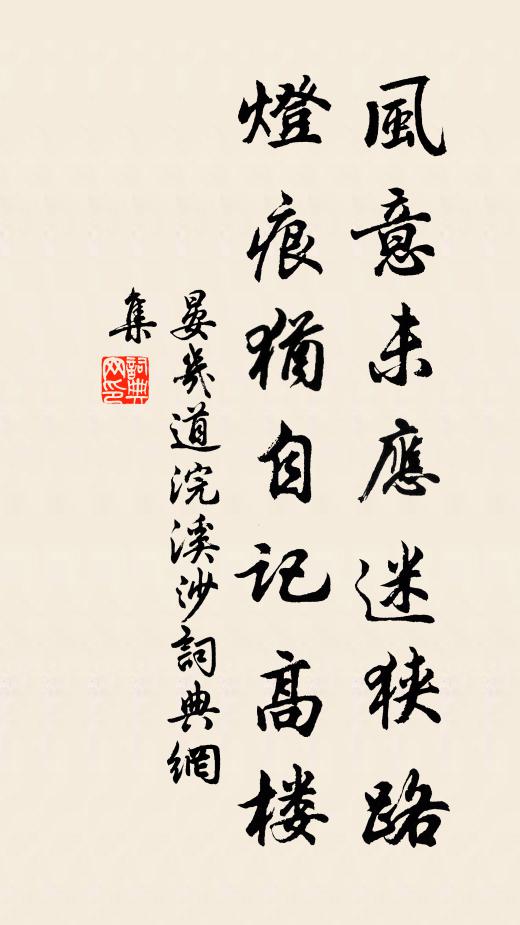 風意未應迷狹路
燈痕猶自記高楼
晏幾道浣溪沙詞典網
集
詞典
网印